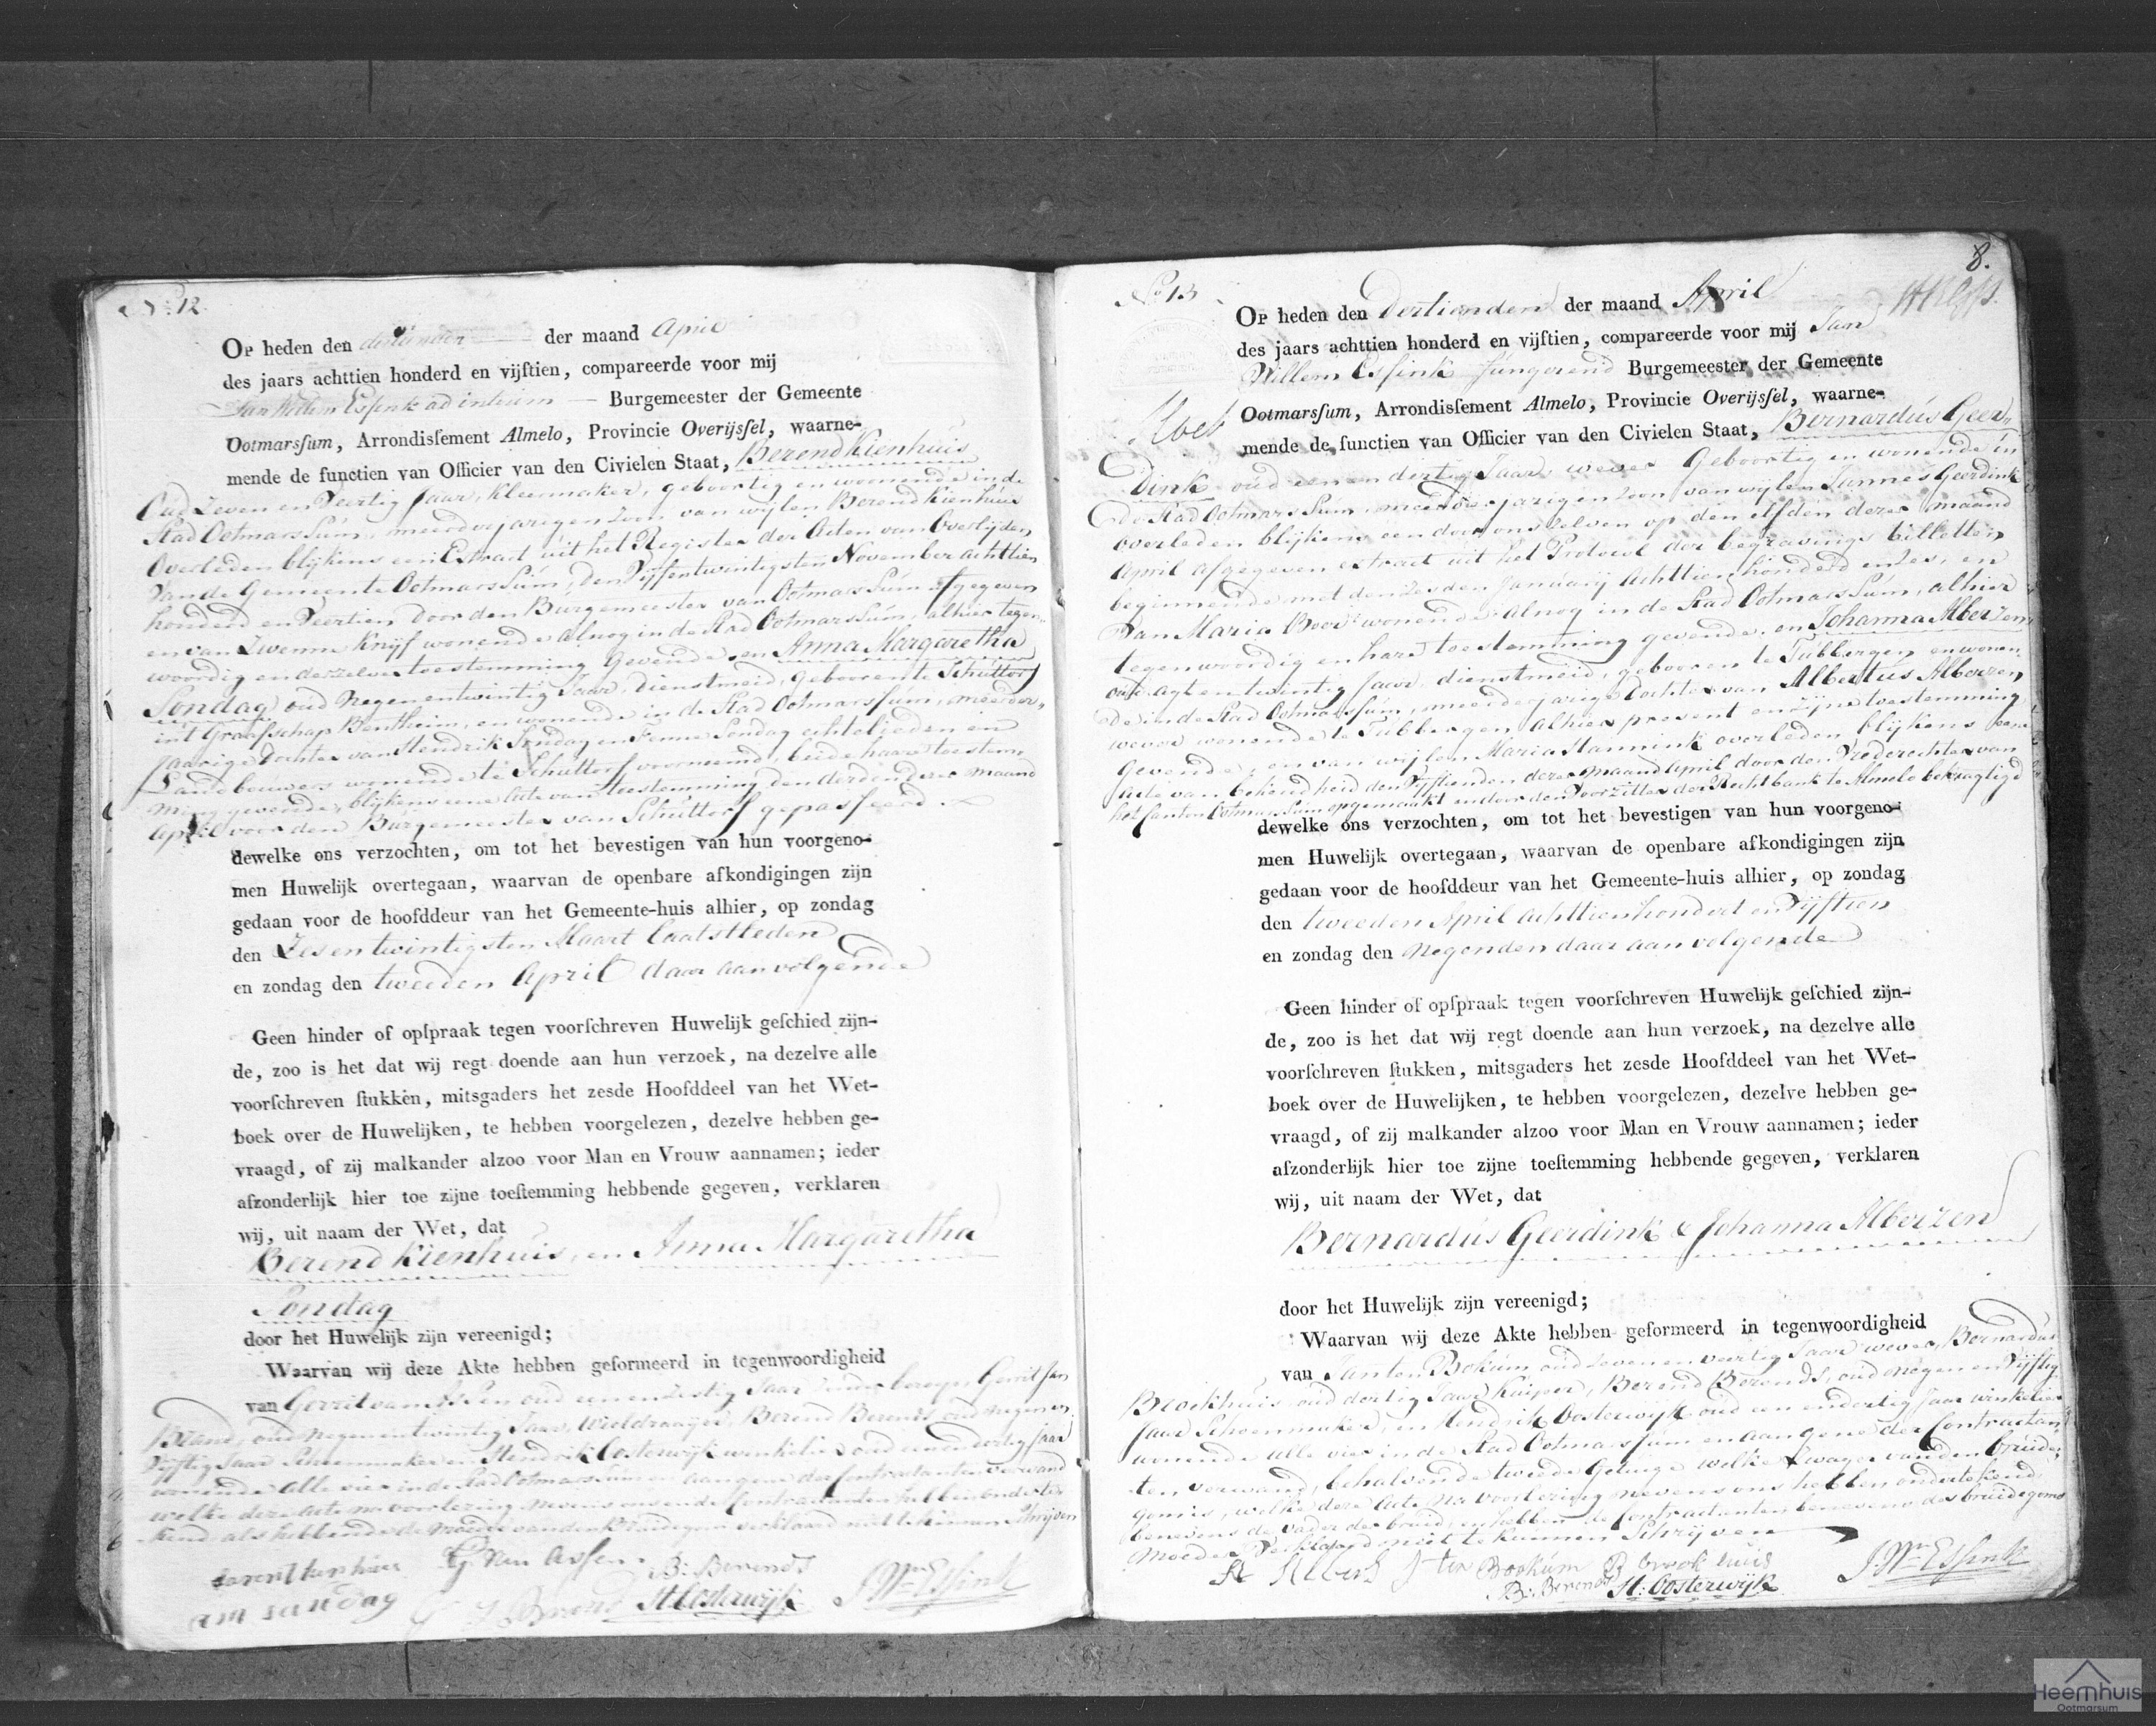 No. 12.
Op heden den dertienden der maand April
des jaars achttien honderd en vijftien, compareerde voor mij
Jan Willem Essink ad interim — Burgemeester der Gemeente
Ootmarsſum, Arrondisſement Almelo, Provincie Overijsſel, waarne-
mende de functien van Officier van den Civielen Staat, Berend Kienhuis
Oud Zeven en Veertig Jaar, Kleermaker, geboortig en woonende in de
Stad Ootmarssum, meerderjarigen Zoon van wijlen Berend Kienhuis
Overleden blijkens een Extract uit het Register der Acten van Overlijden
van de Gemeente Ootmarssum, den Vijfentwintigsten November achttien
honderd en Veertien, door den Burgemeester van Ootmarssum afgegeven
en van Zwenne Knijf wonende alnog in de Stad Ootmarssum, alhier tegen-
woordig en derzelver toestemming Gevende, en Anna Margaretha
Sondag oud negen en twintig Jaar, Dienstmeid, geboren te Schuttorf
int Graafschap Bentheim, en wonende in de Stad Ootmarssum, meerder-
jaarige dochter van Hendrik Sondag en Fenne Sondag echtelieden en
Landbouwers wonende te Schuttorf voornoemd, beide haare toestem-
ming gevende, blijkens eene Acte van toestemming den derden dezer maand
April voor den Burgemeester van Schuttorf gepasseerd.
dewelke ons verzochten, om tot het bevestigen van hun voorgeno-
men Huwelijk overtegaan, waarvan de openbare afkondigingen zijn
gedaan voor de hoofddeur van het Gemeente-huis alhier, op zondag
den Zesentwintigsten Maart laatstleden
en zondag den tweeden April daar aanvolgende
Geen hinder of opſpraak tegen voorſchreven Huwelijk geſchied zijn-
de, zoo is het dat wij regt doende aan hun verzoek, na dezelve alle
voorſchreven ſtukken, mitsgaders het zesde Hoofddeel van het Wet-
boek over de Huwelijken, te hebben voorgelezen, dezelve hebben ge-
vraagd, of zij malkander alzoo voor Man en Vrouw aannamen; ieder
afzonderlijk hier toe zijne toeſtemming hebbende gegeven, verklaren
wij, uit naam der Wet, dat
Berend Kienhuis, en Anna Margaretha
Sondag
door het Huwelijk zijn vereenigd;
Waarvan wij deze Akte hebben geformeerd in tegenwoordigheid
van Gerrit van Assen oud een en Zestig Jaar Gerrit Jan
Brand, oud negenentwintig Jaar, Wieldraaijer, Berend Berends oud negen en
Vijftig Jaar Schoenmaker en Hendrik Oosterwijk winkelier oud eenendertig Jaar
wonende alle vier in de Stad Ootmarssum en aan gene der Contractanten verwand
welke deze Acte na voorlezing nevens ons en de Contractanten hebben onderte-
kend als hebbende de Moeder van den Bruidegom verklaard niet te kunnen Schrijven
G. van Assen B: Berends
am sandag H Oosterwijk J. Wm Essink
8.
No 13
Op heden den Dertienden der maand April
des jaars achttien honderd en vijftien, compareerde voor mij Jan
Willem Essink fungerend Burgemeester der Gemeente
Ootmarsſum, Arrondisſement Almelo, Provincie Overijsſel, waarne-
mende de functien van Officier van den Civielen Staat, Bernardus Geer-
dink oud een en dertig Jaar, wever Geboortig en wonende in
de Stad Ootmarssum, meerderjarigen Zoon van wijlen Jannes Geerdink
overleden blijkens een door ons Zelven op den Elfden dezer maand
April afgegeven extract uit het Protocol der begravings billetten
beginnende met den Zesden Januarij Achttien honderd en Zes, en
van Maria Boer wonende alnog in de Stad Ootmarssum, alhier
tegenwoordig en hare toestemming gevende, en Johanna Alberzen
oud agt en twintig Jaar, dienstmeid, gebooren te Tubbergen en wonen-
de in de Stad Ootmarssum, meerderjarige dochter van Albertus Alberzen
wever wonende te Tubbergen, alhier present en zijne toestemming
Gevende, en van wijlen Maria Hannink overleden blijkens eene
Acte van bekendheid den Vijftienden dezer maand April door den Vrederechter van
het Canton Ootmarssum opgemaakt en door den Voorzitter der Rechtbank te Almelo bekragtigd
dewelke ons verzochten, om tot het bevestigen van hun voorgeno-
men Huwelijk overtegaan, waarvan de openbare afkondigingen zijn
gedaan voor de hoofddeur van het Gemeente-huis alhier, op zondag
den tweeden April Achttienhonderd en Vijftien
en zondag den negenden daar aanvolgende
Geen hinder of opſpraak tegen voorſchreven Huwelijk geſchied zijn-
de, zoo is het dat wij regt doende aan hun verzoek, na dezelve alle
voorſchreven ſtukken, mitsgaders het zesde Hoofddeel van het Wet-
boek over de Huwelijken, te hebben voorgelezen, dezelve hebben ge-
vraagd, of zij malkander alzoo voor Man en Vrouw aannamen; ieder
afzonderlijk hier toe zijne toeſtemming hebbende gegeven, verklaren
wij, uit naam der Wet, dat
Bernardus Geerdink & Johanna Alberzen
door het Huwelijk zijn vereenigd;
Waarvan wij deze Akte hebben geformeerd in tegenwoordigheid
van Jan ten Bokum oud Zeven en veertig Jaar wever, Bernardus
Broekhuis oud dertig Jaar Kuiper, Berend Berends, oud negen en Vijftig
Jaar Schoenmaker, en Hendrik Oosterwijk oud een en dertig Jaar winkelier
wonende alle vier in de Stad Ootmarssum en aan gene der Contractan-
ten verwand, behalven de tweede Getuige welke Swager van den bruide-
gom is, welke deze Acte na voorlezing nevens ons hebben ondertekend
benevens de vader der bruid, en hebben de Contractanten benevens des bruidegoms
Moeder Verklaard niet te kunnen Schrijven
J ten Bookum B brookhuis
B: Berends H: Oosterwijk J. Wm Essink
Heemhuis
Ootmarsum